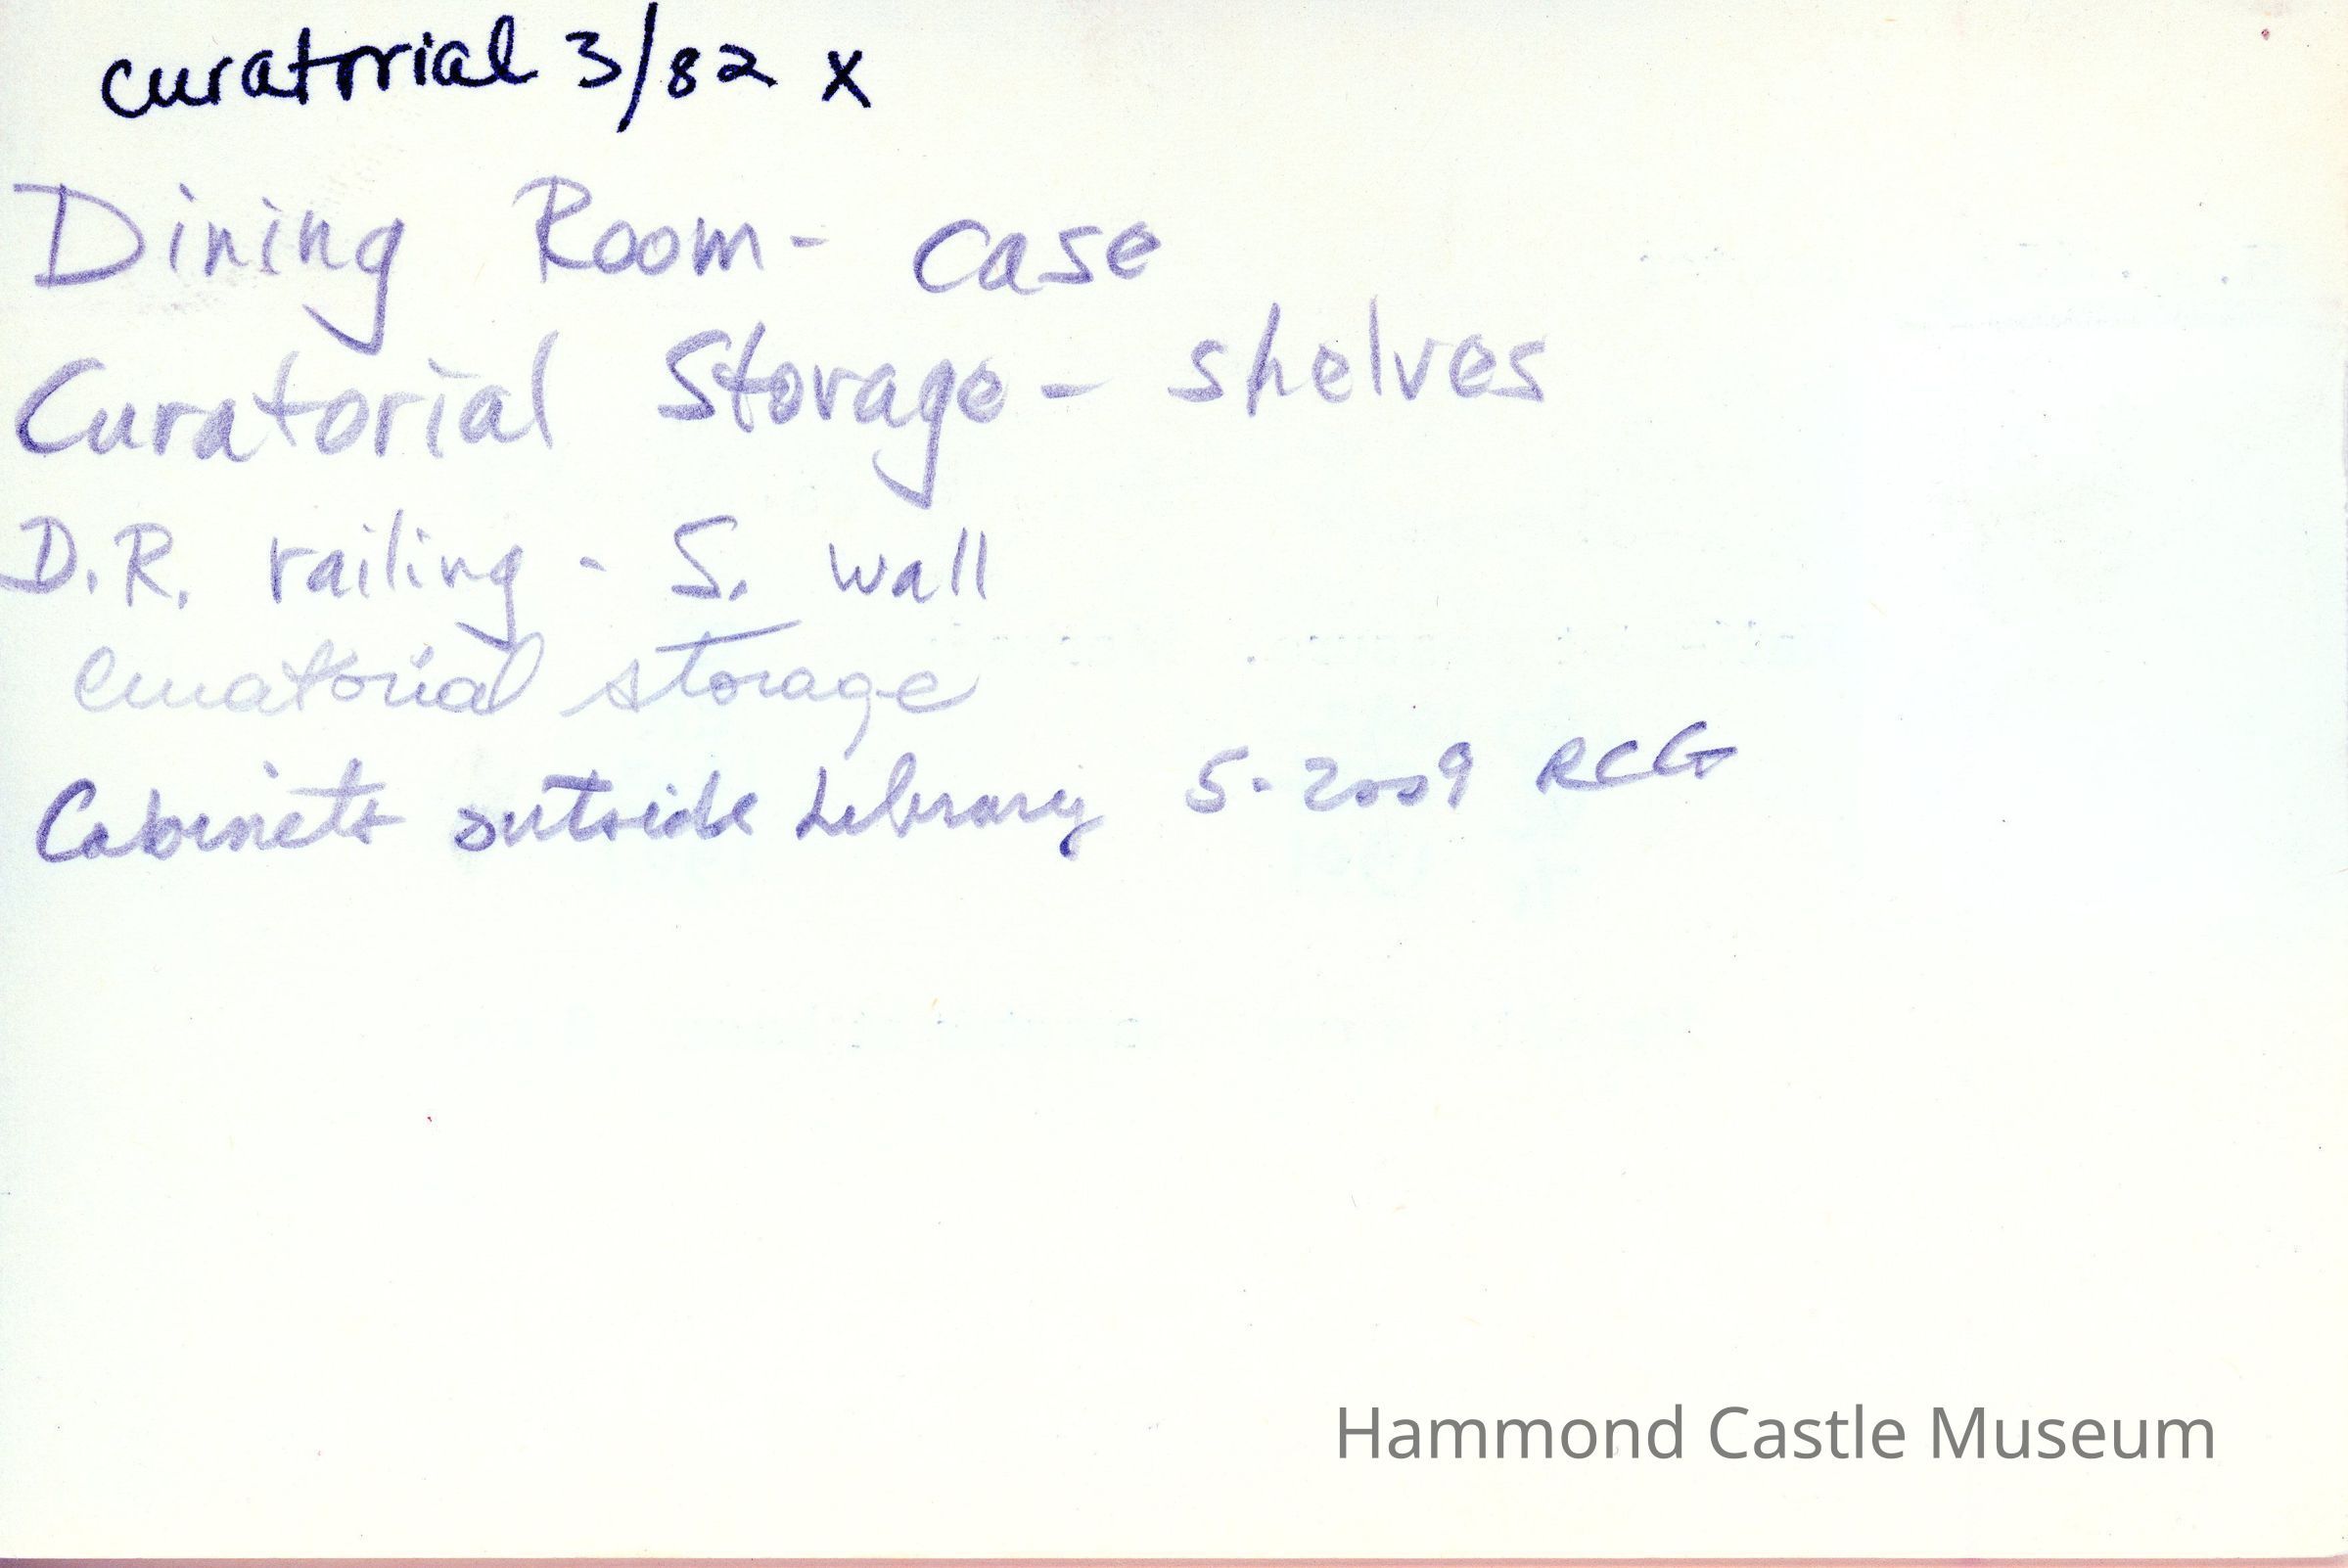 curatorial 3/82 x
Dining Room - case
Curatorial Storage - shelves
D.R. railing - S. wall
curatorial storage
Cabinets outside Library 5-2009 RCG
Hammond Castle Museum